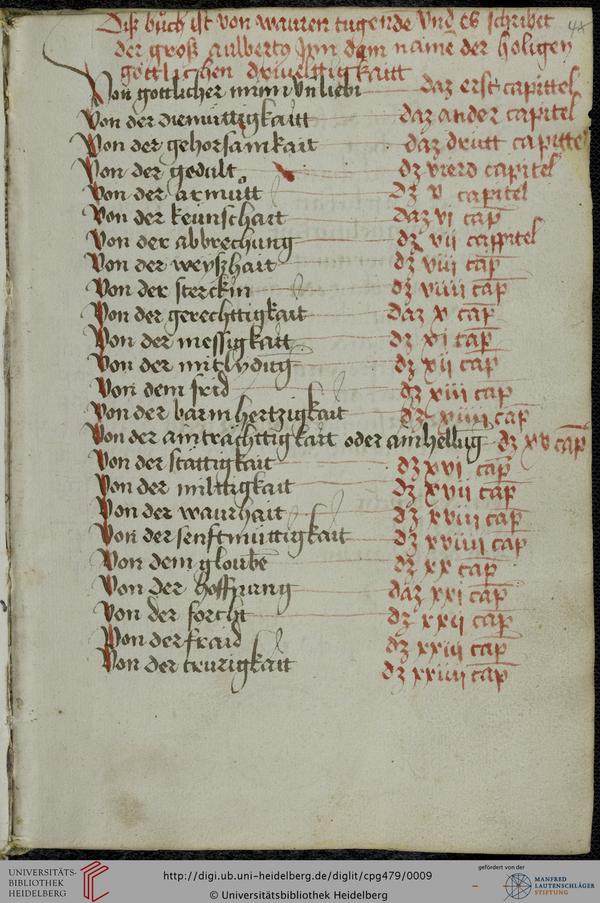 Diß bůch ist von wauren tugende Vnd es schribet 4r
der groß aulberto Jnn dem name der heligen
göttlichen driueltigkaitt
Von gottlicher minn Vn liebi daz erst capittel
Von der diemüttigkaitt daz ander capitel
Von der gehorsamkait daz dritt capittel
Von der gedult dz vierd capitel
Von der armůtt dz v capitel
Von der keunschait daz vi cap
Von der abbrechung dz vii cappitel
Von der weyßhait dz viii cap
Von der sterckin dz viiii cap
Von der gerechttigkait daz x cap
Von der messigkaitt dz xi cap
Von der mitlydūg dz xii cap
Von dem frid dz xiii cap
Von der barmhertzigkait dz xiiii cap
Von der ainträchttigkait oder ainhellug dz xv cap
Von der stättigkait dz xvi cap
Von der miltigkait dz xvii cap
Von der waurhait dz xviii cap
Von der senftmüttigkait dz xviiii cap
Von dem gloube dz xx cap
Von der hoffnung daz xxi cap
Von der forcht dz xxii cap
Von der fraid dz xxiii cap
Von der trurigkait dz xxiiii cap
UNIVERSITÄTS-
BIBLIOTHEK
HEIDELBERG
http://digi.ub.uni-heidelberg.de/diglit/cpg479/0009
© Universitätsbibliothek Heidelberg
gefördert von der
MANFRED
LAUTENSCHLÄGER
STIFTUNG